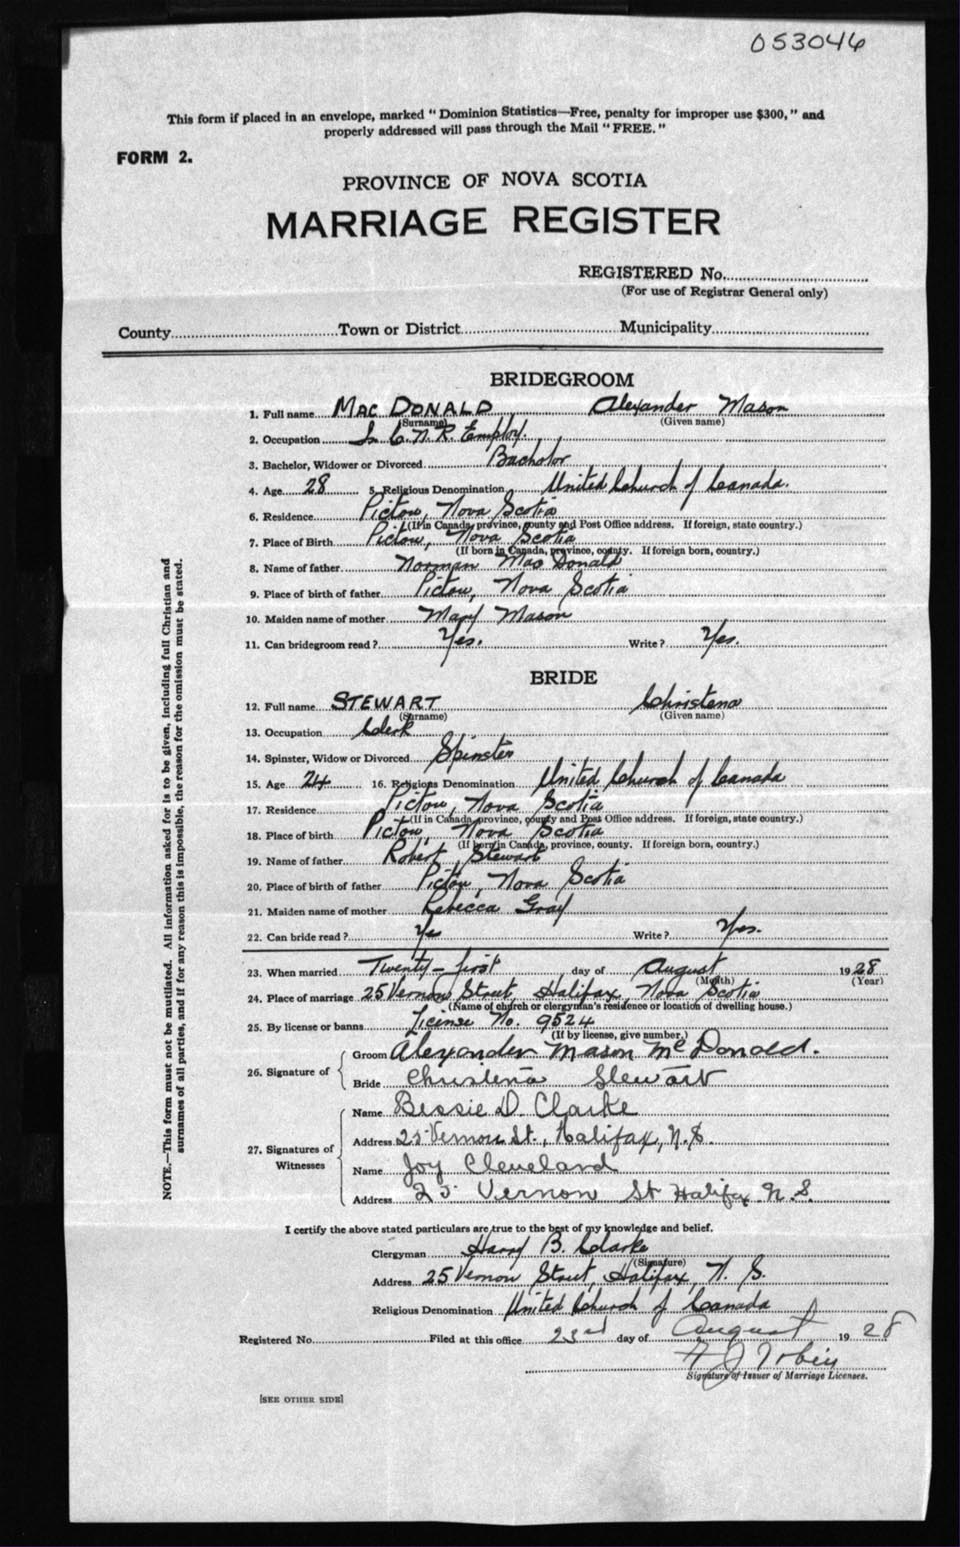 053046
This form if placed in an envelope, marked "Dominion Statistics—Free, penalty for improper use $300," and
properly addressed will pass through the Mail "FREE."
FORM 2.
PROVINCE OF NOVA SCOTIA
MARRIAGE REGISTER
REGISTERED No.
(For use of Registrar General only)
County Town or District Municipality
BRIDEGROOM
1. Full name MAC DONALD Alexander Mason
(Surname) (Given name)
2. Occupation C.N.R. Employ.
3. Bachelor, Widower or Divorced Bachelor
4. Age 28 5. Religious Denomination United Church of Canada.
6. Residence Pictou, Nova Scotia
(If in Canada, province, county and Post Office address. If foreign, state country.)
7. Place of Birth Pictou, Nova Scotia
(If born in Canada, province, county. If foreign born, country.)
8. Name of father Norman Mac Donald
9. Place of birth of father Pictou, Nova Scotia
10. Maiden name of mother Mary Mason
11. Can bridegroom read? Yes. Write? Yes.
BRIDE
12. Full name STEWART Christena
(Surname) (Given name)
13. Occupation Clerk
14. Spinster, Widow or Divorced Spinster
15. Age 24 16. Religious Denomination United Church of Canada
17. Residence Pictou, Nova Scotia
(If in Canada, province, county and Post Office address. If foreign, state country.)
18. Place of birth Pictou, Nova Scotia
(If born in Canada, province, county. If foreign born, country.)
19. Name of father Robert Stewart
20. Place of birth of father Pictou, Nova Scotia
21. Maiden name of mother Rebecca Gray
22. Can bride read? Yes Write? Yes.
23. When married Twenty-first day of August 1928
(Month) (Year)
24. Place of marriage 25 Vernon Street, Halifax, Nova Scotia
(Name of church or clergyman's residence or location of dwelling house.)
25. By license or banns License No. 9524
(If by license, give number.)
26. Signature of
Groom Alexander Mason McDonald.
Bride Christena Stewart
27. Signatures of Witnesses
Name Bessie D. Clarke
Address 25 Vernon St., Halifax, N.S.
Name Joy Cleveland
Address 25 Vernon St Halifax N.S.
I certify the above stated particulars are true to the best of my knowledge and belief.
Clergyman Harry B. Clarke
(Signature)
Address 25 Vernon Street, Halifax, N. S.
Religious Denomination United Church of Canada
Registered No. Filed at this office 23rd day of August 1928
Tobin
Signature of Issuer of Marriage Licenses.
[SEE OTHER SIDE]
NOTE.—This form must not be mutilated. All information asked for is to be given, including full Christian and
surnames of all parties, and if for any reason this is impossible, the reason for the omission must be stated.